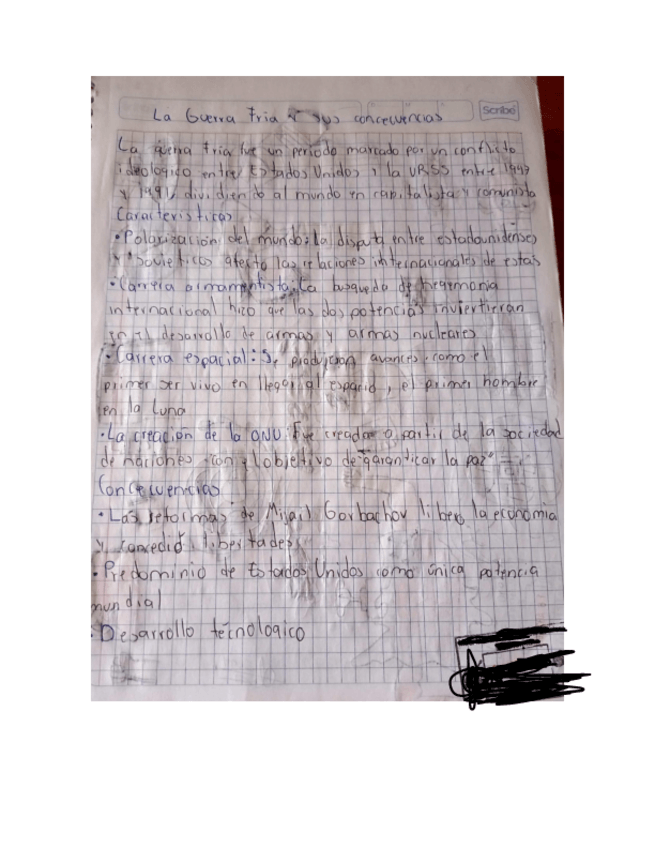 La Guerra Fria y sus concecuencias
Scribe
La guerra fria fue un periodo marcado por un conflicto
ideologico entre Estados Unidos y la URSS entre 1947
y 1991, dividiendo al mundo en capitalista y comunista
Caracteristicas
• Polarización del mundo: la disputa entre estadounidenses
y sovieticos afecto las relaciones internacionales de estas
• Carrera armamentista: La busqueda de hegemonia
internacional hizo que las dos potencias invirtieran
en el desarrollo de armas y armas nucleares
• Carrera espacial: Se produjeron avances como el
primer ser vivo en llegar al espacio, el primer hombre
en la luna
• La creación de la ONU Fue creada a partir de la sociedad
de naciones con el objetivo de garanticar la paz
Concecuencias
• Las reformas de Mijail Gorbachov libero la economia
y concedió libertades
• Predominio de Estados Unidos como única potencia
mundial
• Desarrollo técnologico